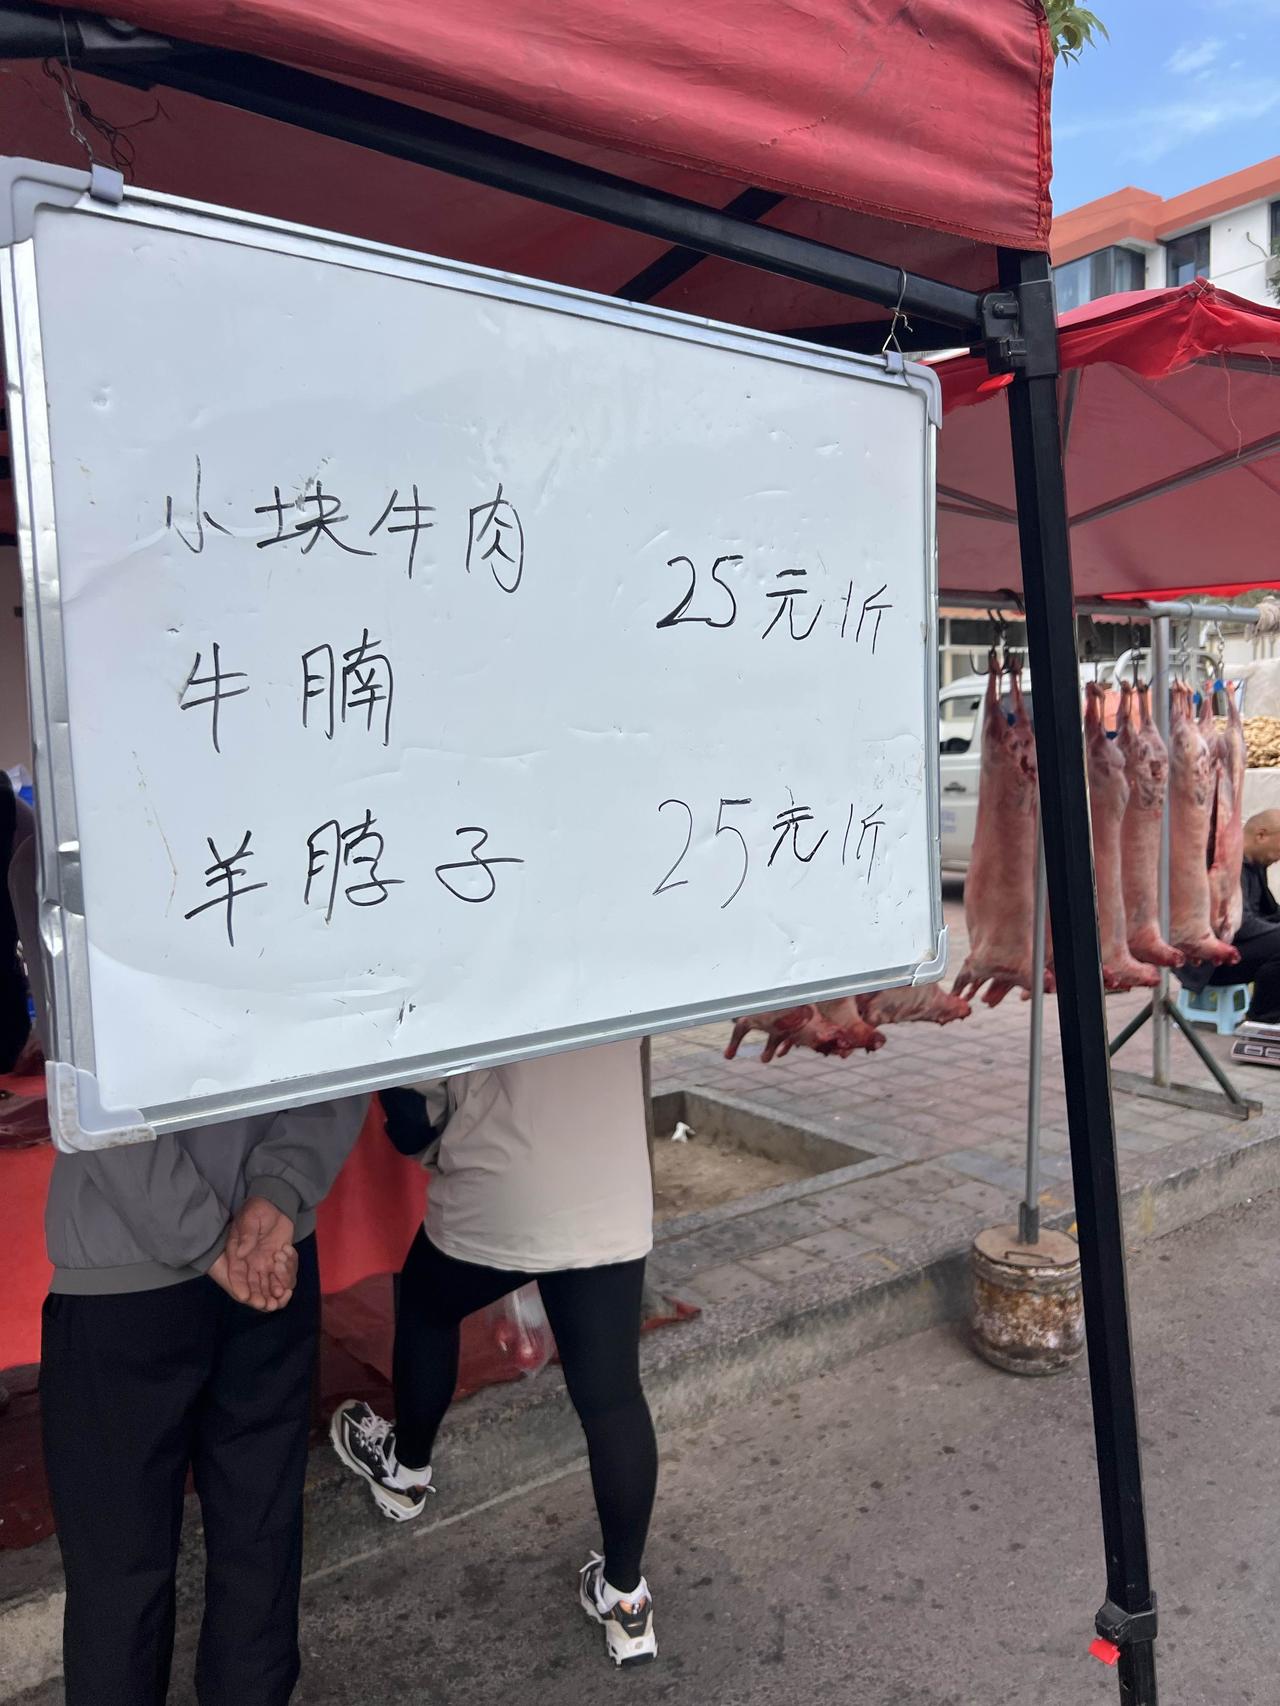 小块牛肉 25元/斤
牛腩
羊脖子 25元/斤